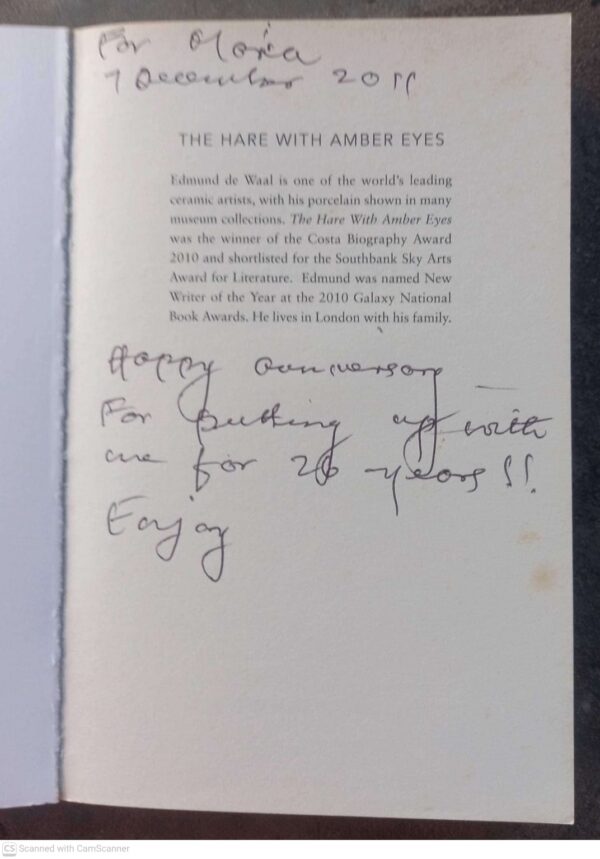 For Gloria
7 December 2011
THE HARE WITH AMBER EYES
Edmund de Waal is one of the world's leading
ceramic artists, with his porcelain shown in many
museum collections. The Hare With Amber Eyes
was the winner of the Costa Biography Award
2010 and shortlisted for the Southbank Sky Arts
Award for Literature. Edmund was named New
Writer of the Year at the 2010 Galaxy National
Book Awards. He lives in London with his family.
Happy anniversary
For putting up with
me for 26 years!!
Enjoy
CS Scanned with CamScanner